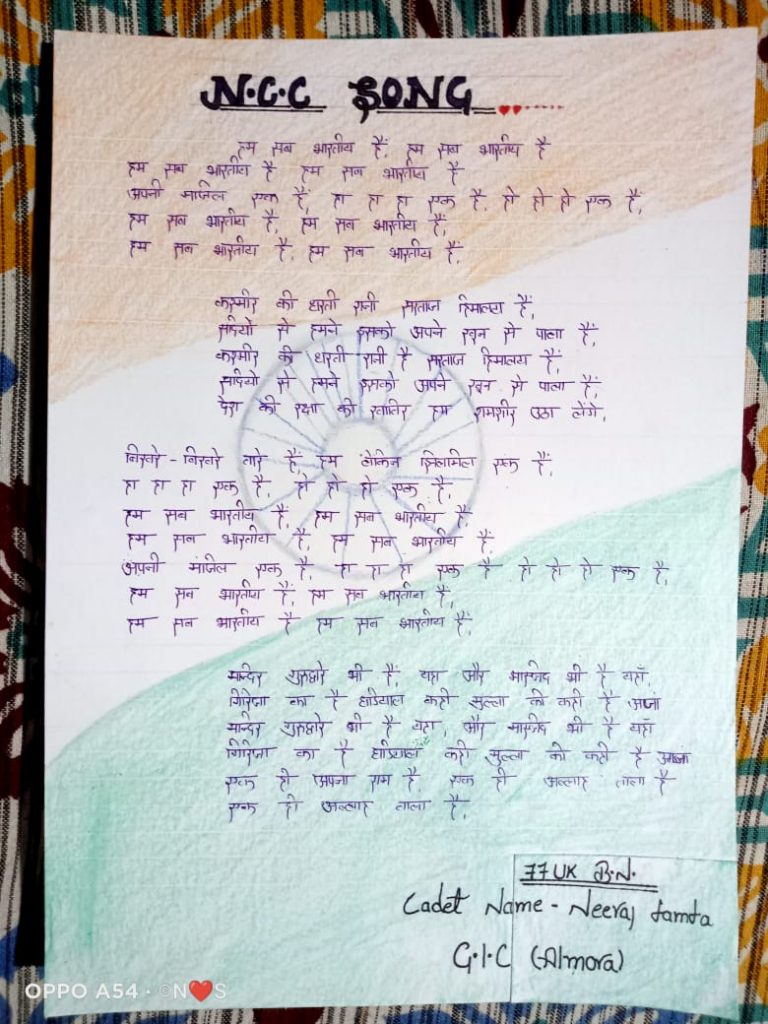 N.C.C SONG
हम सब भारतीय हैं, हम सब भारतीय है
हम सब भारतीय है हम सब भारतीय है
अपनी मंजिल एक है, हा हा हा एक है, हो हो हो एक है,
हम सब भारतीय है, हम सब भारतीय है,
हम सब भारतीय है. हम सब भारतीय है,
कश्मीर की धरती रानी सरताज हिमालय है,
सदियों से हमने इसको अपने खून से पाला है,
कश्मीर की धरती रानी है सरताज हिमालय है,
सदियो से हमने इसको अपने खून से पाला है,
देश की रक्षा की खातिर हम शमशीर उठा लेंगे,
बिखरे - बिखरे तारे है, हम लेकिन झिलमिल एक है,
हा हा हा एक है, हो हो हो एक है,
हम सब भारतीय है, हम सब भारतीय है,
हम सब भारतीय है, हम सब भारतीय है,
अपनी मंजिल एक है, हा हा हा एक है हो हो हो एक है,
हम सब भारतीय हैं, हम सब भारतीय है,
हम सब भारतीय है हम सब भारतीय है,
मन्दिर गुरुद्वारे भी हैं, यहा और मस्जिद भी है यहाँ,
गिरिजा का है घडियाल कही मुल्ला की कही है अजा
मन्दिर गुरुद्वारे भी है यहा, और मस्जिद भी है यहाँ
गिरिजा का है घडियाल कही मुल्ला की कही है अजा
एक ही अपना राम है, एक ही अल्लाह ताला है
एक ही अल्लाह ताला है,
77 UK B.N.
Cadet Name - Neeraj Tamta
G.I.C (Almora)
OPPO A54 · ©N❤S